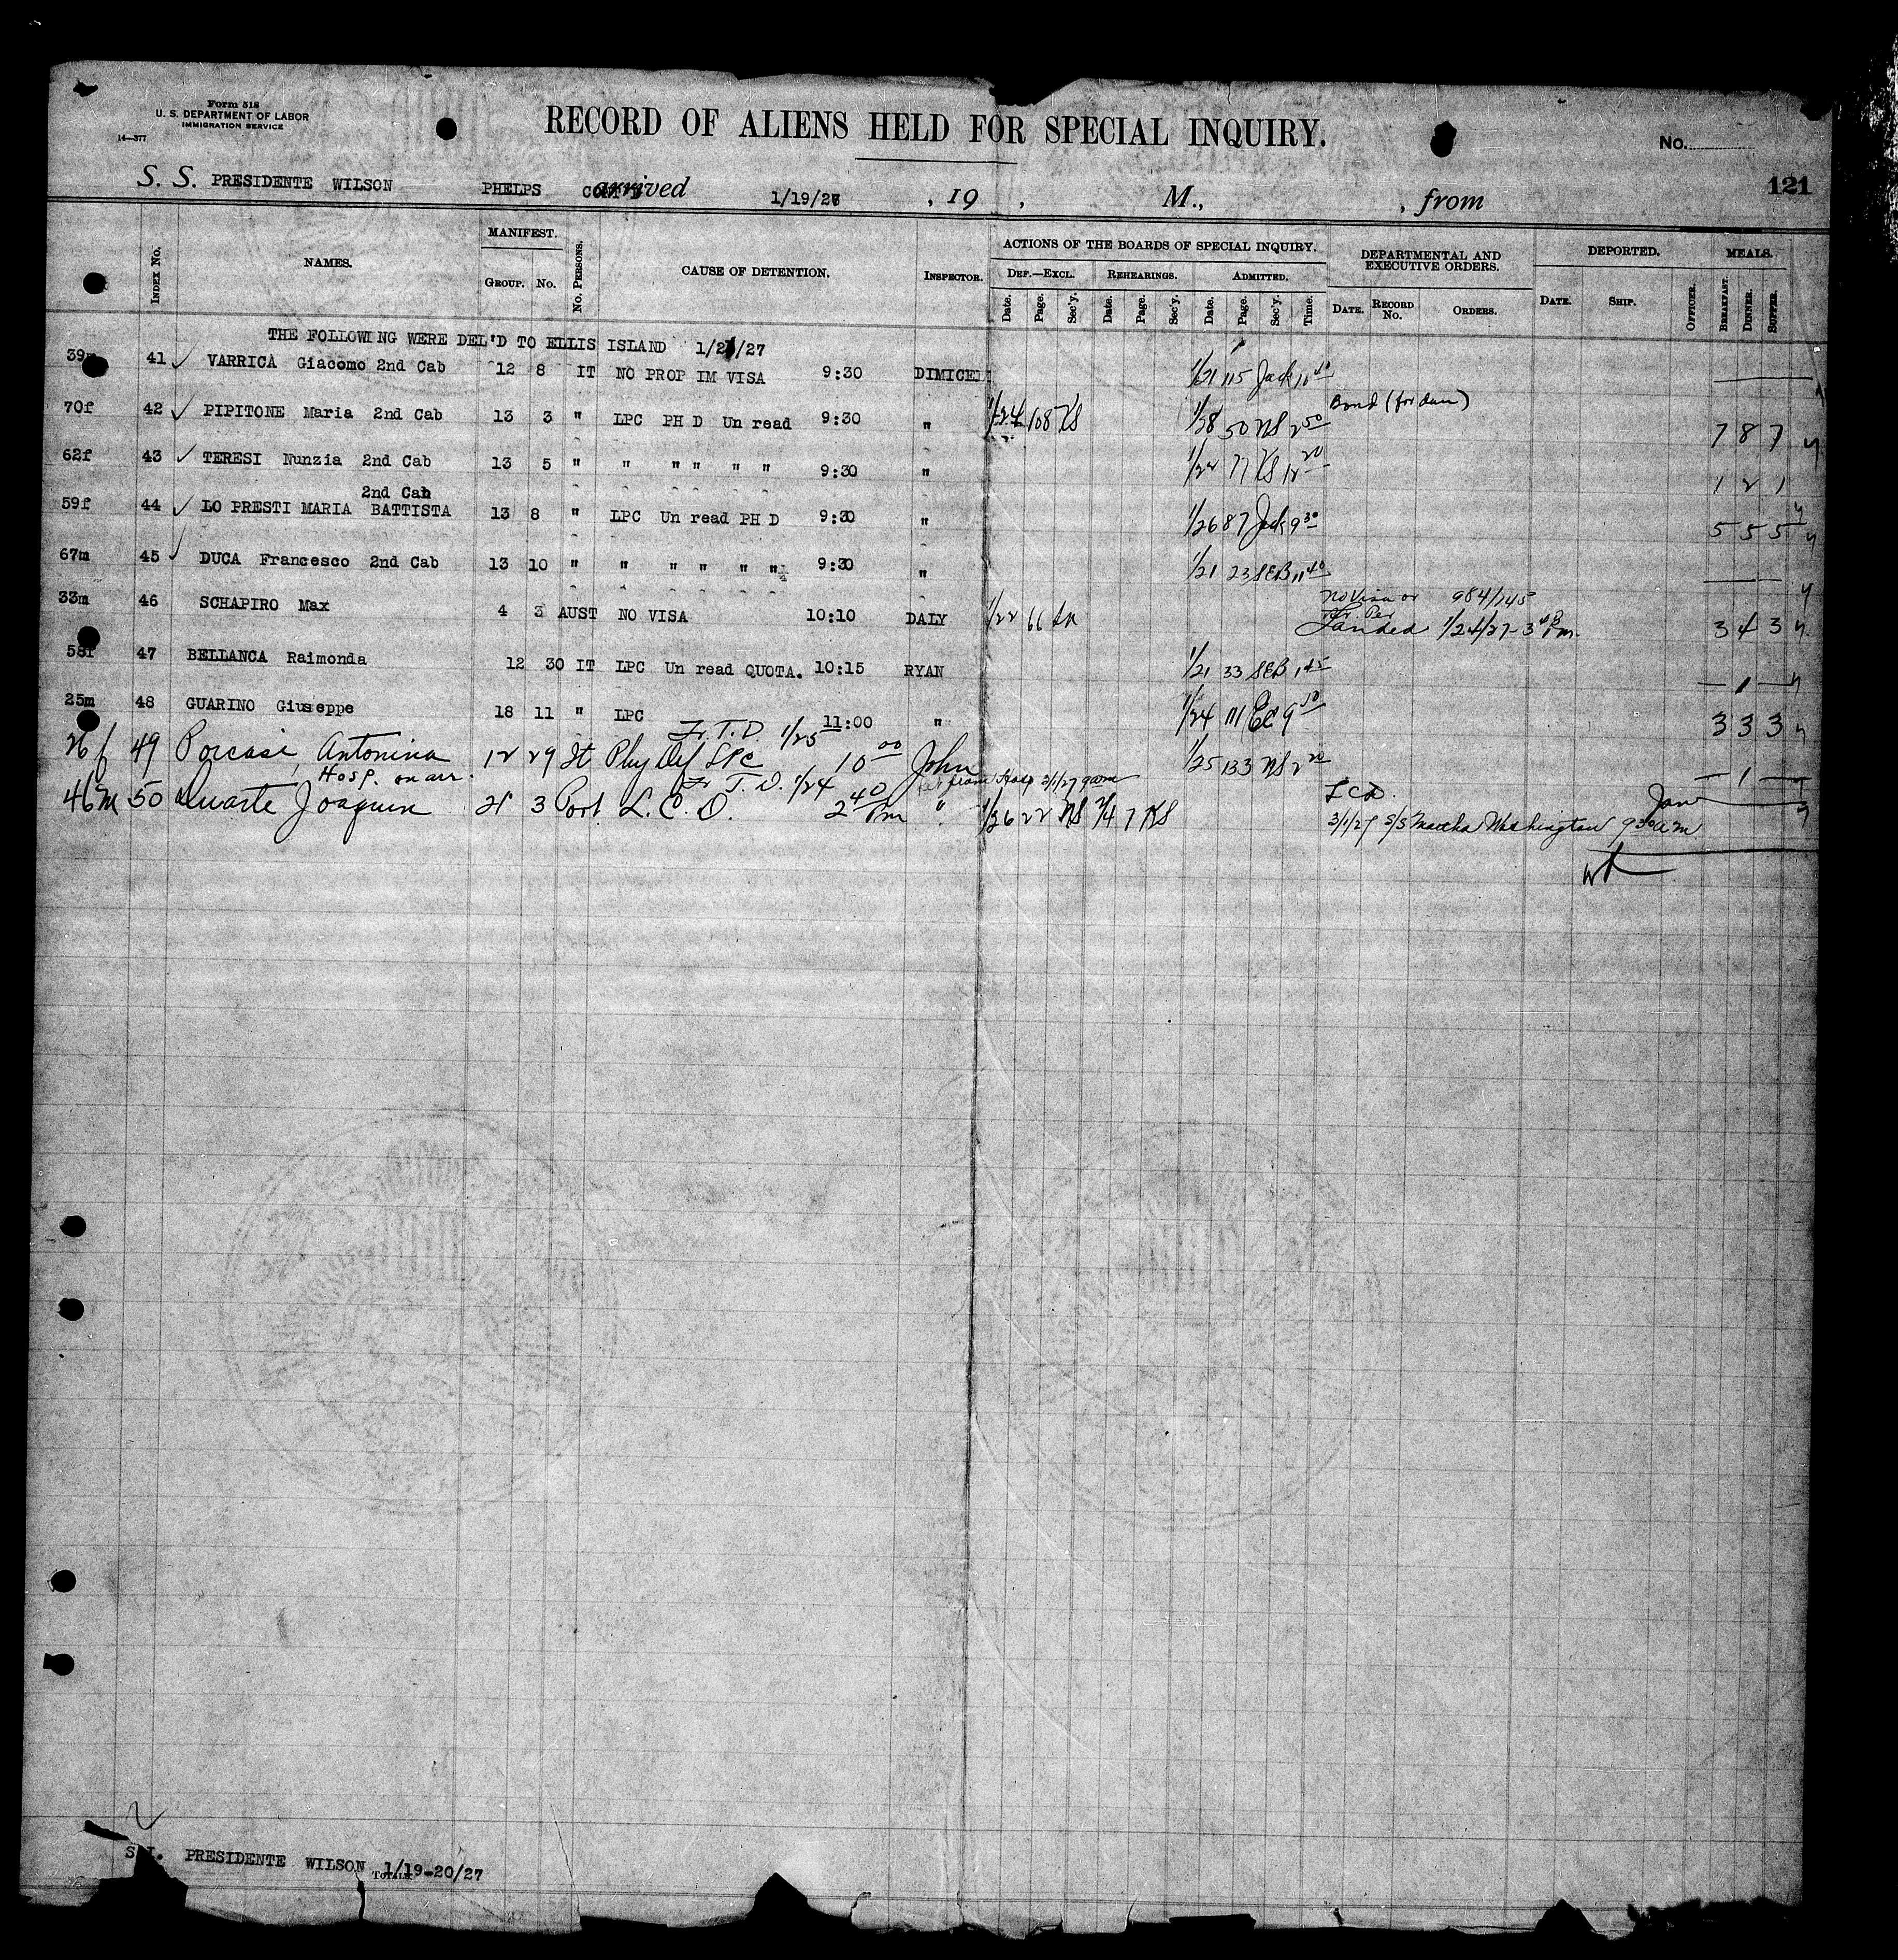 Form 518
U. S. DEPARTMENT OF LABOR
IMMIGRATION SERVICE
14—377
RECORD OF ALIENS HELD FOR SPECIAL INQUIRY.
No.
S. S. PRESIDENTE WILSON PHELPS arrived 1/19/27 , 19 , M., , from 121
Index No. NAMES. MANIFEST. GROUP. No. No. PERSONS. CAUSE OF DETENTION. INSPECTOR. ACTIONS OF THE BOARDS OF SPECIAL INQUIRY. DEF.—EXCL. REHEARINGS. ADMITTED. Date. Page. Sec'y. Date. Page. Sec'y. Date. Page. Sec'y. Time. DEPARTMENTAL AND EXECUTIVE ORDERS. DATE. RECORD No. ORDERS. DEPORTED. DATE. SHIP. OFFICER. MEALS. BREAKFAST. DINNER. SUPPER.
THE FOLLOWING WERE DEL'D TO ELLIS ISLAND 1/21/27
39m 41 ✓ VARRICA Giacomo 2nd Cab 12 8 IT NO PROP IM VISA 9:30 DIMICELI 1/21 115 Jack
70f 42 ✓ PIPITONE Maria 2nd Cab 13 3 " LPC PH D Un read 9:30 " 1/24 108 KS 1/28 50 NS 2 50 Bond 7 8 7
62f 43 ✓ TERESI Nunzia 2nd Cab 13 5 " " " " " " 9:30 " 1/24 77 KS 12 20 1 2 1
2nd Cab
59f 44 ✓ LO PRESTI MARIA BATTISTA 13 8 " LPC Un read PH D 9:30 " 1/26 87 Jack 9 30 5 5 5
67m 45 ✓ DUCA Francesco 2nd Cab 13 10 " " " " " " 9:30 " 1/21 23 SEB 11 40
33m 46 SCHAPIRO Max 4 3 AUST NO VISA 10:10 DALY 1/22 66 No visa or 984/145
Landed 1/24/27 - 3 40 Pm. 3 4 3
58f 47 BELLANCA Raimonda 12 30 IT LPC Un read QUOTA. 10:15 RYAN 1/21 33 SEB 1 45 — 1 —
25m 48 GUARINO Giuseppe 18 11 " LPC 11:00 " 1/24 111 EC 9 50 3 3 3
Fr. T. D. 1/25
26f 49 Porcasi, Antonina 12 29 It Phy Def LPC 10 00 John 1/25 133 NS 2 20 — 1 —
Hosp. on arr. Fr T. D. 1/24 from Hosp 3/1/27 9am
46m 50 Duarte Joaquin 21 3 Port L. C. D. 2 40 Pm " 1/26 22 NS 2/4 7 KS L C D.
3/1/27 S/S Martha Washington 9 30 am
S.I. PRESIDENTE WILSON 1/19-20/27
TOTALS